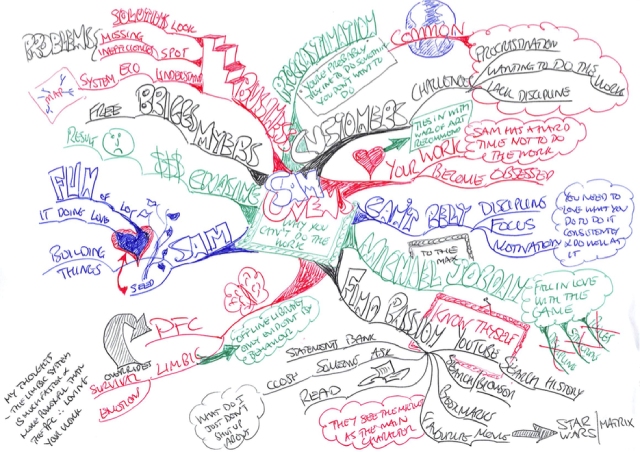 SAM
OVEN
WHY YOU
CAN'T DO THE
WORK
PROCRASTINATION
YOU'RE PROBABLY
TRYING TO DO SOMETHING
YOU DON'T WANT TO
DO
CUSTOMERS
COMMON
CHALLENGES
PROCRASTINATION
WANTING TO DO THE WORK
LACK DISCIPLINE
TIES IN WITH
WAR OF ART
RECOMMEND
YOUR WORK
BECOME OBSESSED
SAM HAS A HARD
TIME NOT TO DO
THE WORK
CAN'T RELY
DISCIPLINE
FOCUS
MOTIVATION
YOU NEED TO
LOVE WHAT YOU
DO TO DO IT
CONSISTENTLY
& DO WELL AT
IT
MICHAEL JORDAN
TO THE
MAX
FELL IN LOVE
WITH THE
GAME
FIND PASSION
KNOW THYSELF
YOUTUBE
SEARCH HISTORY
SEARCH BROWSER
BOOKMARKS
FAVOURITE MOVIE
STAR
WARS
MATRIX
THEY SEE THEMSELVES
AS THE MAIN
CHARACTER
STATEMENT BANK
CLOSE SOMEONE ASK
READ
WHAT DO I
JUST DON'T
SHUT UP
ABOUT
PFC
LIMBIC
OVERRIDES
SURVIVAL
EMOTION
OFFLINE LIBRARY
ONLY EVIDENT BY
BEHAVIOUR
MY THOUGHT
- THE LIMBIC SYSTEM
IS MUCH FASTER &
MORE POWERFUL THAN
THE PFC ∴ LOVING
YOUR WORK
SAM
FUN
OF
LOT
IT DOING LOVE
BUILDING
THINGS
SEED
$$$
RESULT
BRIGGS
MYERS
FREE
PROBLEMS
SOLUTIONS LOOK
MISSING
INEFFICIENCIES
SPOT
SYSTEM
UNDERSTAND
MAP